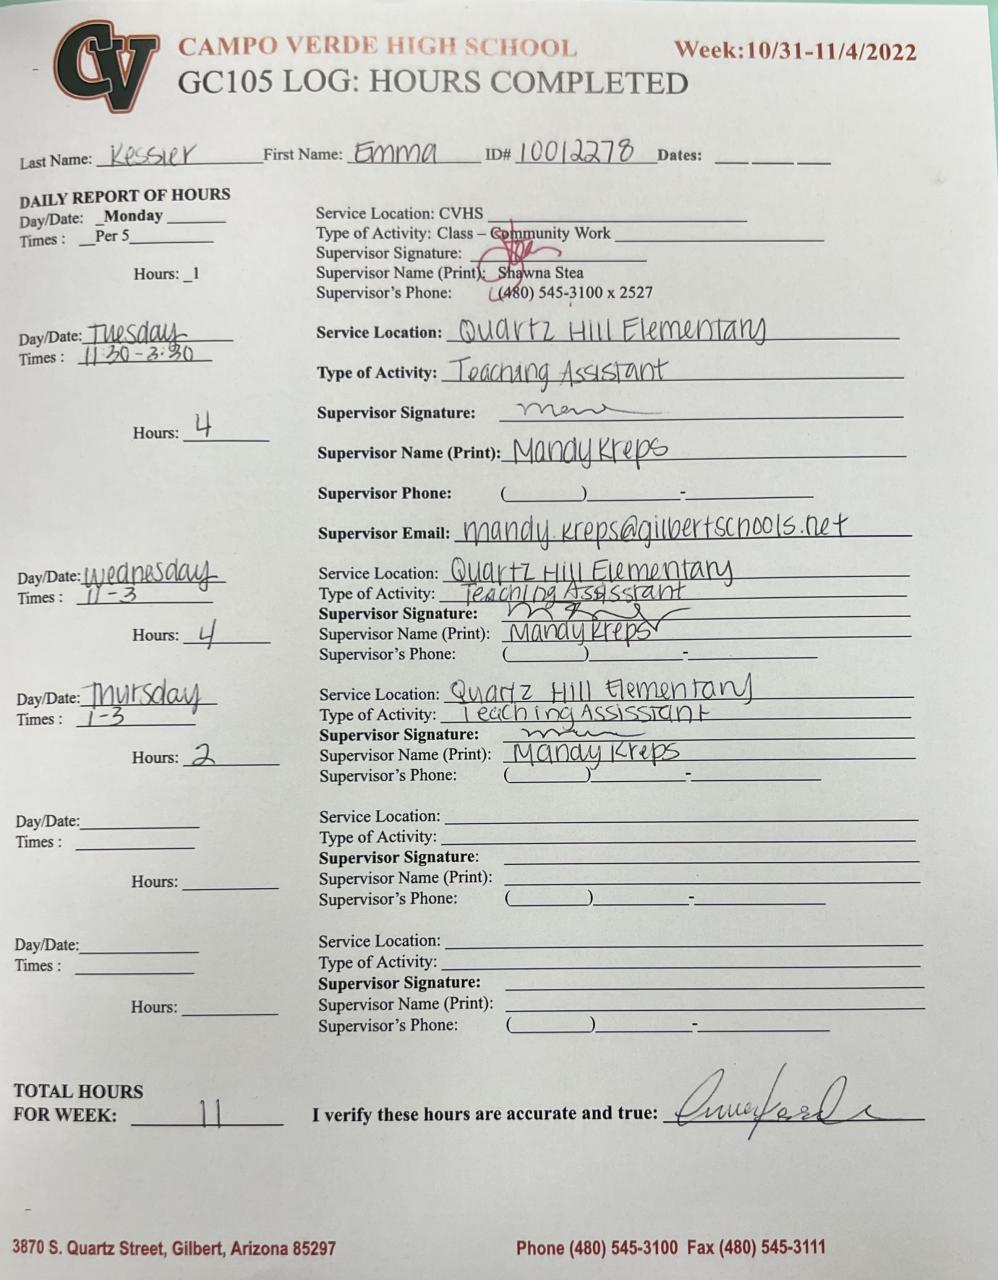 CV
CAMPO VERDE HIGH SCHOOL Week:10/31-11/4/2022
GC105 LOG: HOURS COMPLETED
Last Name: Kessler First Name: Emma ID# 10012278 Dates: ___ ___ ___
DAILY REPORT OF HOURS
Day/Date: _Monday
Times : __Per 5
Hours: _1
Service Location: CVHS
Type of Activity: Class – Community Work
Supervisor Signature:
Supervisor Name (Print): Shawna Stea
Supervisor's Phone: (480) 545-3100 x 2527
Day/Date: Tuesday
Times : 11:30-3:30
Hours: 4
Service Location: Quartz Hill Elementary
Type of Activity: Teaching Assistant
Supervisor Signature:
Supervisor Name (Print): Mandy Kreps
Supervisor Phone: ( ) -
Supervisor Email: mandy.kreps@gilbertschools.net
Day/Date: Wednesday
Times : 11-3
Hours: 4
Service Location: Quartz Hill Elementary
Type of Activity: Teaching Assisstant
Supervisor Signature:
Supervisor Name (Print): Mandy Kreps
Supervisor's Phone: ( ) -
Day/Date: Thursday
Times : 1-3
Hours: 2
Service Location: Quartz Hill Elementary
Type of Activity: Teaching Assisstant
Supervisor Signature:
Supervisor Name (Print): Mandy Kreps
Supervisor's Phone: ( ) -
Day/Date:
Times :
Hours:
Service Location:
Type of Activity:
Supervisor Signature:
Supervisor Name (Print):
Supervisor's Phone: ( ) -
Day/Date:
Times :
Hours:
Service Location:
Type of Activity:
Supervisor Signature:
Supervisor Name (Print):
Supervisor's Phone: ( ) -
TOTAL HOURS
FOR WEEK: 11 I verify these hours are accurate and true:
3870 S. Quartz Street, Gilbert, Arizona 85297 Phone (480) 545-3100 Fax (480) 545-3111